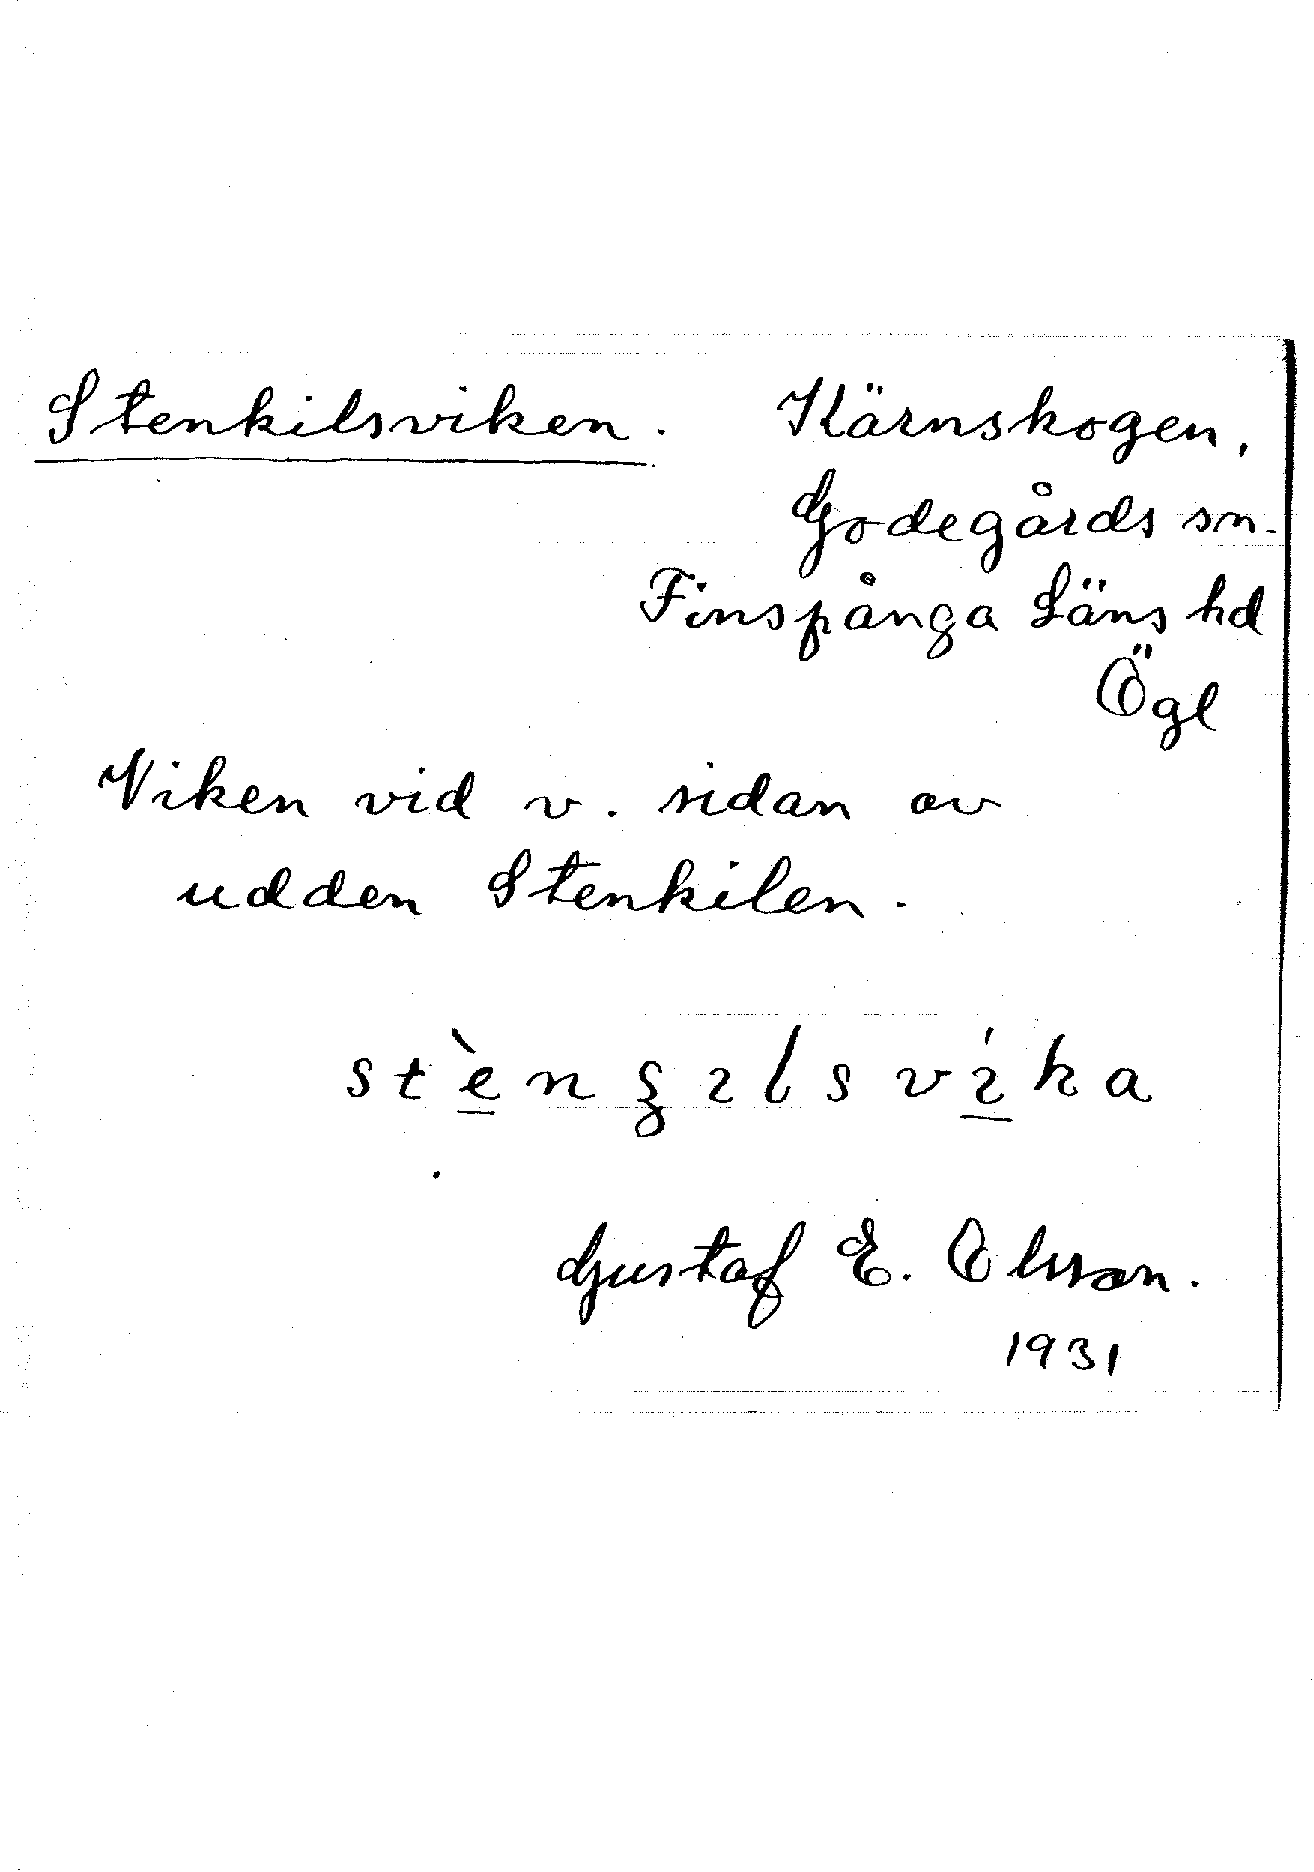 Stenkilsviken. Kärnskogen,
Godegårds sn.
Finspånga Läns hd
Ögl
Viken vid v. sidan av
udden Stenkilen.
Gustaf E. Olsson.
1931